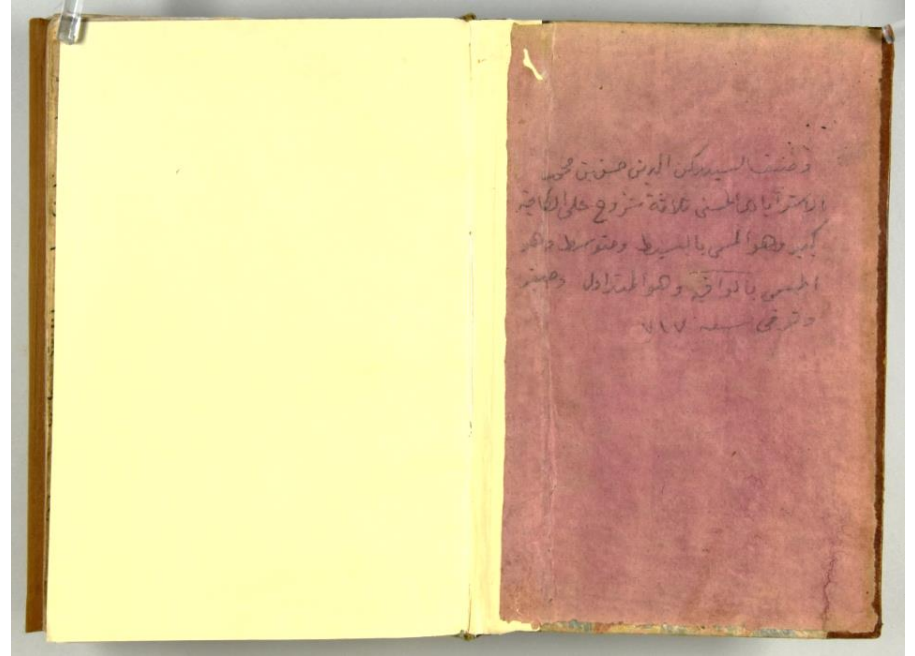 وصنف السيد ركن الدين حسن بن محمد
الاستراباذي الحسيني ثلاثة شروح على الكافية
كبير وهو المسمى بالبسيط ومتوسط وهو
المسمى بالوافية وهو المتداول وصغير
وتوفي سنة ٧١٧